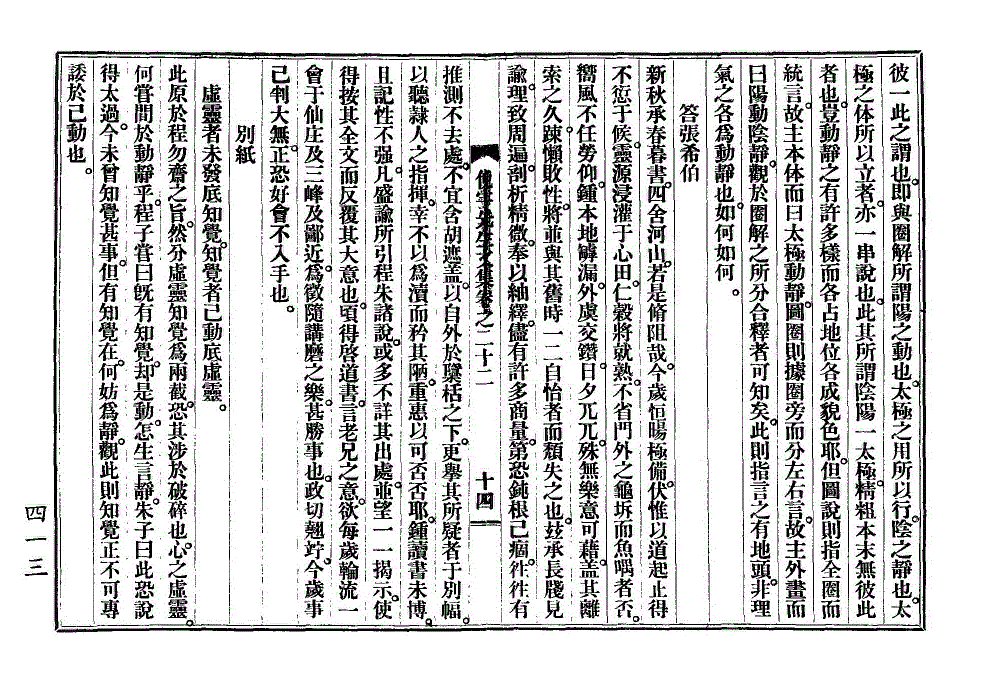 彼一此之謂也。即與圈解所謂陽之動也。太極之用所以行。陰之靜也。太
極之体所以立者。亦一串說也。此其所謂陰陽一太極。精粗本末無彼此
者也。豈動靜之有許多樣而各占地位各成貌色耶。但圖說則指全圈而
統言。故主本体而曰太極動靜。圖圈則據圈旁而分左右言。故主外畫而
曰陽動陰靜。觀於圈解之所分合釋者可知矣。此則指言之有地頭。非理
氣之各爲動靜也。如何如何。
答張希伯
新秋承春暮書。四舍河山。若是脩阻哉。今歲恒暘極備。伏惟以道起止得
不愆于候。靈源浸灌于心田。仁穀將就熟。不省門外之龜坼而魚喁者否。
嚮風不任勞仰。鍾本地罅漏。外虞交鑽。日夕兀兀。殊無樂意可藉。蓋其離
索之久。踈懶敗性。將並與其舊時一二自怡者而頹失之也。玆承長牋見
諭。理致周遍。剖析精微。奉以紬繹。儘有許多商量。第恐鈍根已痼。徃徃有
之二十二
十四
推測不去處。不宜含胡遮盖。以自外於櫽栝之下。更擧其所疑者于別幅。
以聽隷人之指揮。幸不以爲瀆而矜其陋。重惠以可否否耶。鍾讀書未博。
且記性不强。凡盛諭所引程朱諸說。或多不詳其出處。並望一一揭示。使
得按其全文而反覆其大意也。頃得啓道書。言老兄之意。欲每歲輪流一
會于仙庄及三峰及鄙近。爲徵隨講磨之樂。甚勝事也。政切翹竚。今歲事
已判大無。正恐好會不入手也。
別紙
虛靈者未發底知覺。知覺者已動底虛靈。
此原於程勿齋之旨。然分虛靈知覺爲兩截。恐其涉於破碎也。心之虛靈。
何甞間於動靜乎。程子甞曰旣有知覺。却是動。怎生言靜。朱子曰此恐說
得太過。今未曾知覺甚事。但有知覺在。何妨爲靜。觀此則知覺正不可專
諉於已動也。
四一三